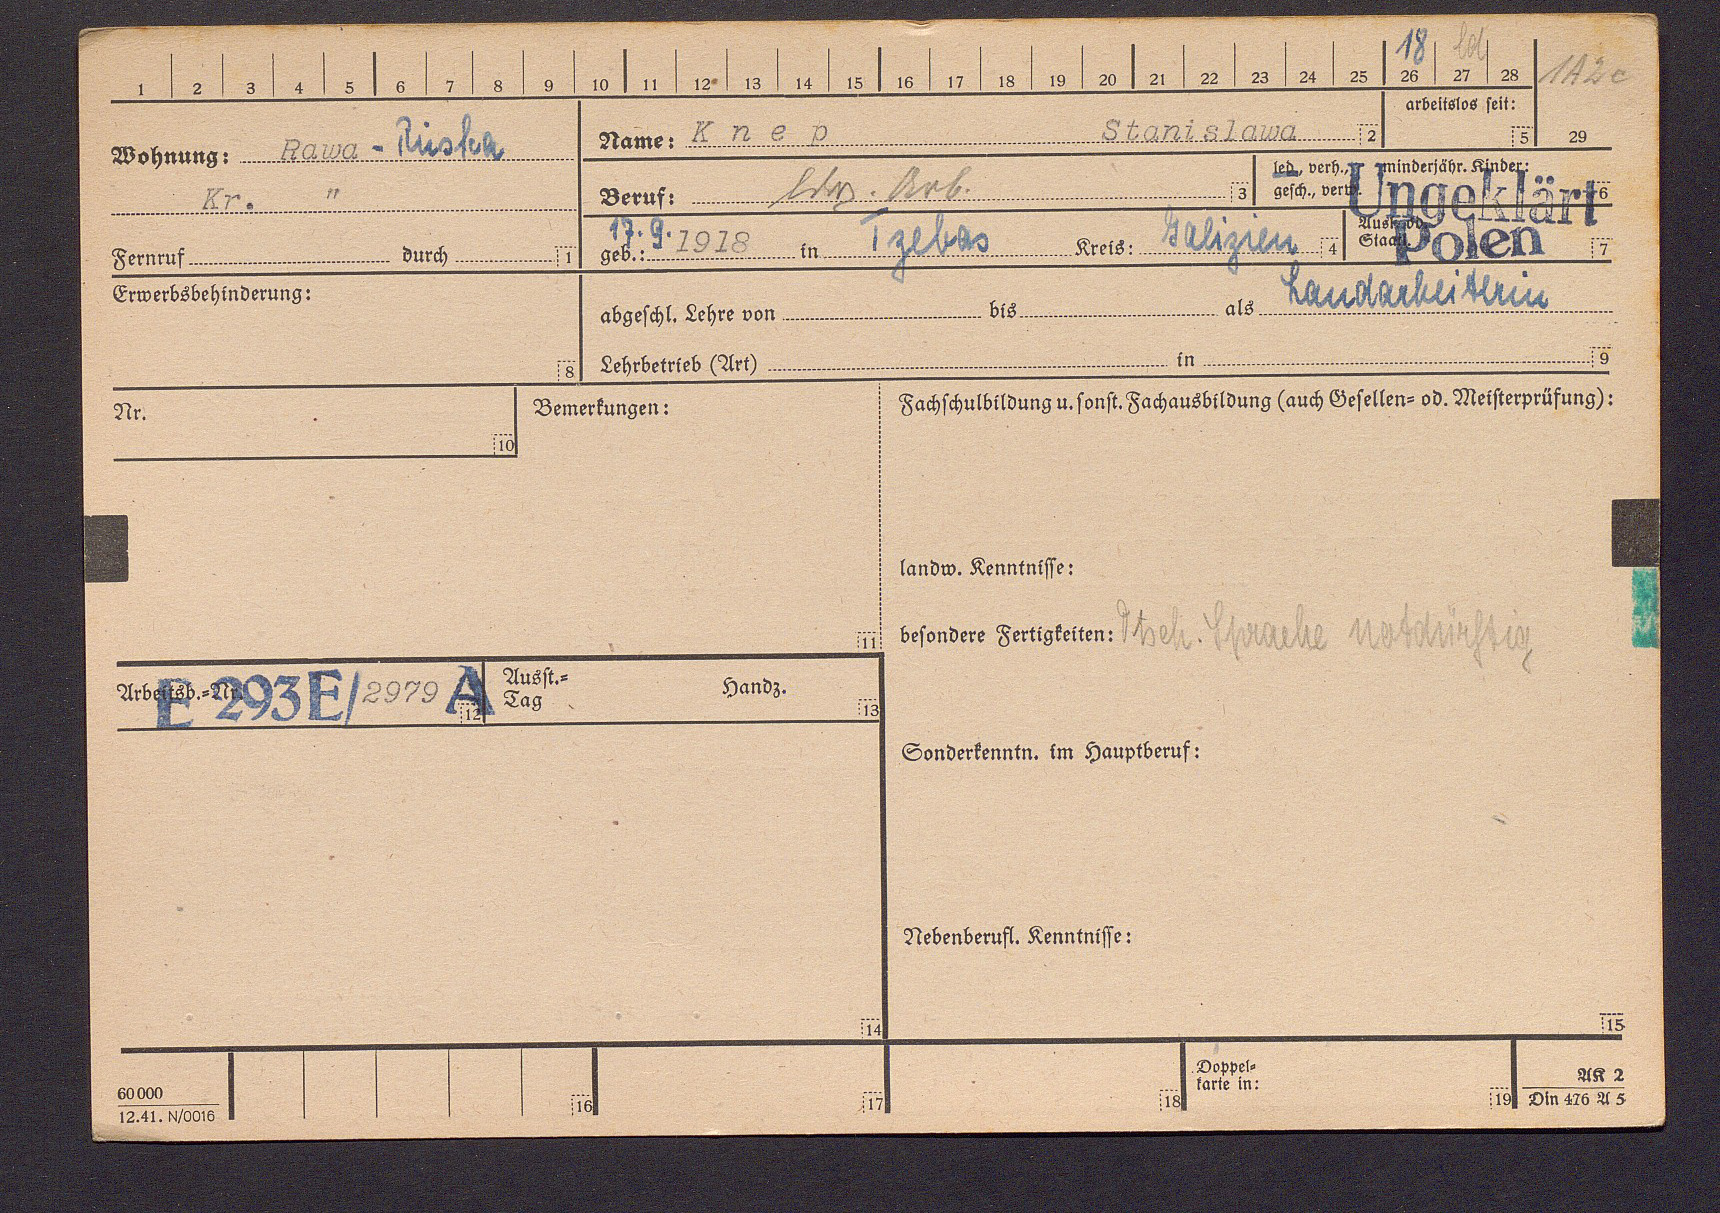 18 ld
1 2 3 4 5 6 7 8 9 10 11 12 13 14 15 16 17 18 19 20 21 22 23 24 25 26 27 28 1A2c
arbeitslos seit:
5 29
Wohnung: Rawa - Ruska
Kr. "
Fernruf durch 1
Name: Knep Stanislawa 2
Beruf: ldw. Arb. 3
led., verh., gesch., verw.
minderjähr. Kinder: 6
Ungeklärt
Polen
geb.: 17.9.1918 in Tzebas Kreis: Galizien 4
Ausl. od.
Staatl. 7
Erwerbsbehinderung: 8
abgeschl. Lehre von bis als Landarbeiterin
Lehrbetrieb (Art) in 9
Nr. 10
Bemerkungen: 11
Fachschulbildung u. sonst. Fachausbildung (auch Gesellen- od. Meisterprüfung):
landw. Kenntnisse:
besondere Fertigkeiten: Dtsch. Sprache notdürftig
Arbeitsb.-Nr. E 293E/2979 A 12
Ausst.-
Tag Handz. 13
Sonderkenntn. im Hauptberuf:
Nebenberufl. Kenntnisse:
14 15
60 000
12.41. N/0016
16 17 18
Doppel-
karte in: 19
AK 2
Din 476 A 5